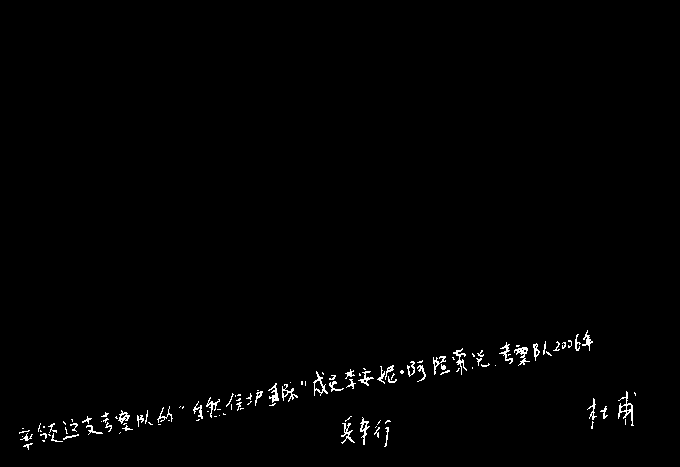 率领这支考察队的“自然保护国际”成员李安妮·阿隆索说，考察队2006年
兵车行
杜甫